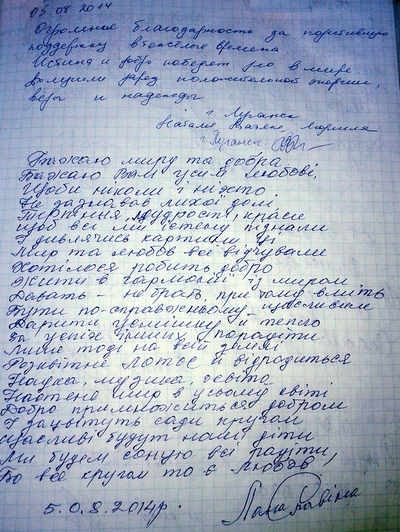 05.08.2014
Огромные благодарность за позитивную
поддержку в тяжёлые времена
Истина и добро победят зло в мире
Получили заряд положительной энергии,
веры и надежды
г. Луганск
Наталия Людмила
г. Луганск
Бажаю миру та добра
Бажаю Вам усім любові,
Щоби ніколи і ніхто
Не зазнавав лихої долі
Терпіння, мудрості, краси
Щоб всі ми істину пізнали
І дивлячись картини ці
Мир та любов всі відчували
Хотілося робить добро
Жити в гармонії із миром
Давать - не брать, при тому вміть
Бути по-справжньому щасливим
Дарити усмішку й тепло
За успіх інших порадіти
Лише тоді на всій землі
Розквітне Лотос й відродиться
Наука, музика, освіта
Настане мир в усьому світі
Добро примножиться добром
І зацвітуть сади кругом
Щасливі будуть наші діти
Ми будем сонцю всі радіти,
Бо все кругом то є Любов,
5.0.8.2014р.
Лана